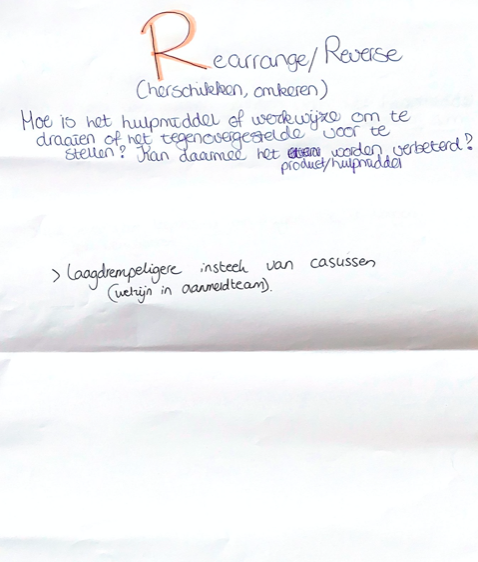 Rearrange/Reverse
(herschikken, omkeren)
Hoe is het hulpmiddel of werkwijze om te
draaien of het tegenovergestelde voor te
stellen? Kan daarmee het worden verbeterd?
product/hulpmiddel
> Laagdrempeligere insteek van casussen
(welzijn in aanmeldteam).